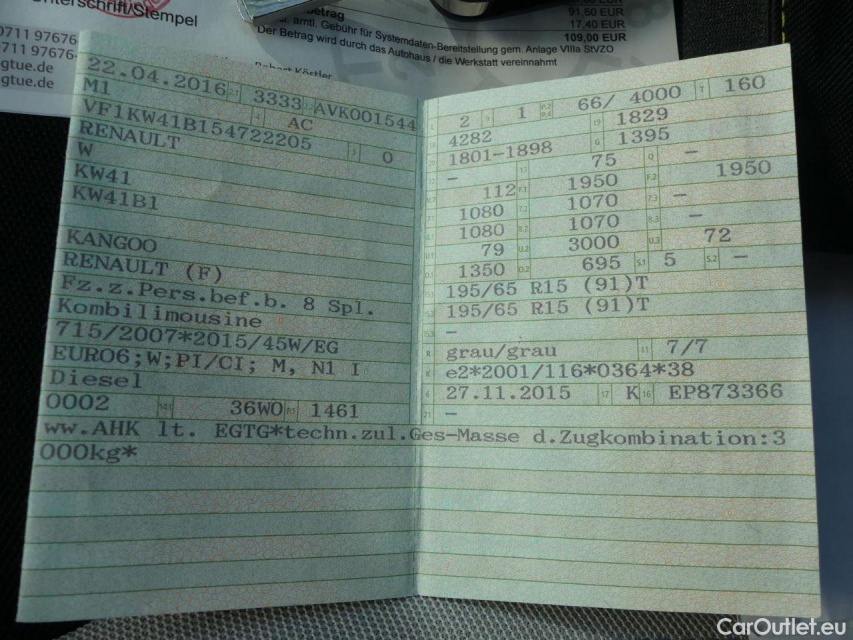 nterschrift/Stempel
0711 97676
0711 97676-
gtue.de
gtue.de
etrag
91,50 EUR
17,40 EUR
109,00 EUR
amtl. Gebühr für Systemdaten-Bereitstellung gem. Anlage VIIIa StVZO
Der Betrag wird durch das Autohaus / die Werkstatt vereinnahmt
22.04.2016 3333 AVK001544
M1 AC
VF1KW41B154722205 0
RENAULT
W
KW41
KW41B1
KANGOO
RENAULT (F)
Fz.z.Pers.bef.b. 8 Spl.
Kombilimousine
715/2007*2015/45W/EG
EURO6;W;PI/CI; M, N1 I
Diesel
0002 36W0 1461
2 1 66/ 4000 160
4282 1829
1801-1898 1395
– 75 –
112 1950 1950
1080 1070 –
1080 1070 –
79 3000 72
1350 695 5 –
195/65 R15 (91)T
195/65 R15 (91)T
–
grau/grau 7/7
e2*2001/116*0364*38
27.11.2015 17 K 16 EP873366
–
ww.AHK lt. EGTG*techn.zul.Ges-Masse d.Zugkombination:3
000kg*
CarOutlet.eu